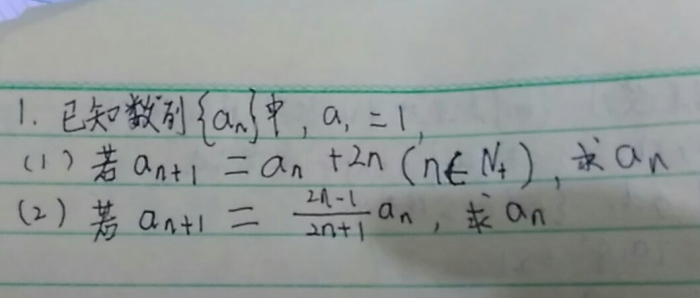 1. 已知数列{aₙ}中, a₁ = 1,
(1) 若 aₙ₊₁ = aₙ + 2n (n∈N₊), 求 aₙ
(2) 若 aₙ₊₁ = \frac{2n-1}{2n+1} aₙ, 求 aₙ